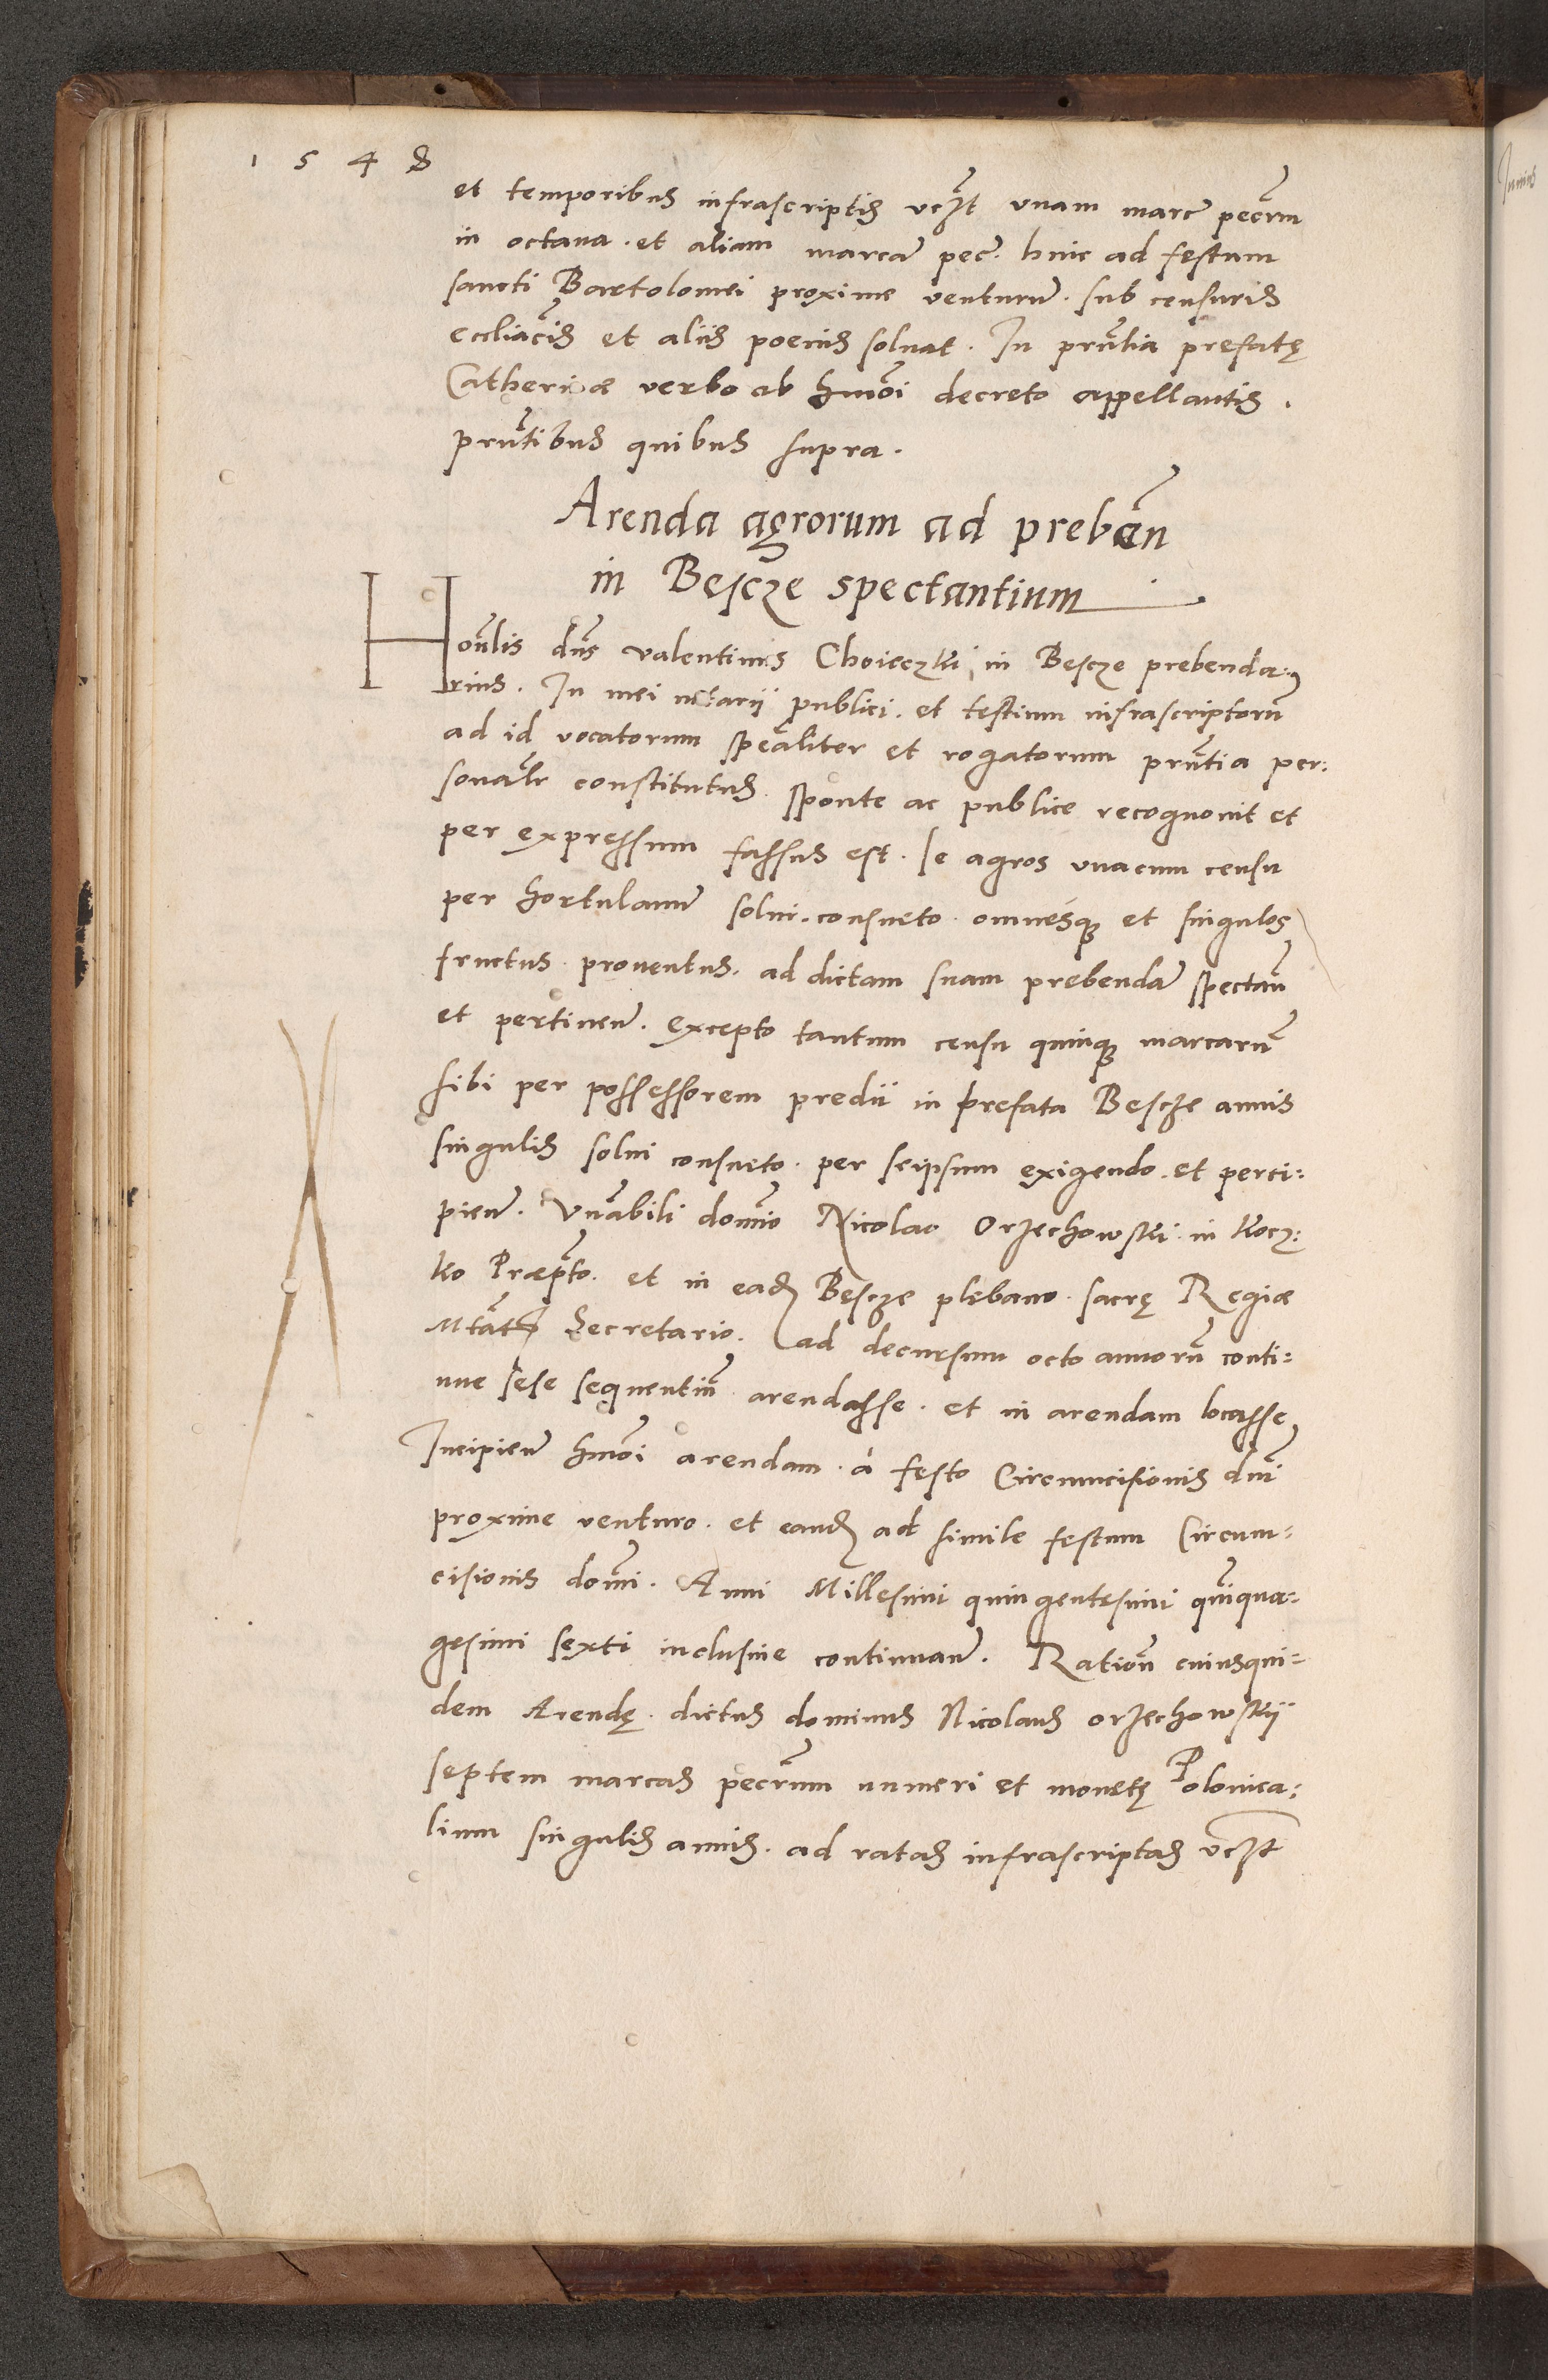 1 5 4 8
et temporibus infrascriptis vczt vnam marc̃ pecr̃m
in octava. et aliam marcã pec̃. hinc ad festum
sancti Bartolomei proxime venturũ. sub censuris
eccliacĩs et aliis poenis soluat. In prñtia prefatę
Catherinæ verbo ab hmõi decreto appellantis.
prñtibus quibus supra.
Arenda agrorum ad prebeñ
in Bęscze spectantium
Honlis dñs Valentinus Choieczki, in Bescze prebenda:
rius. In mei notarii publici. et testium infrascriptorũ
ad id vocatorum speãliter et rogatorum prñtia per:
sonalr̃ constitutus. sponte ac publice recognouit et
per expressum fassus est. se agros vnacum censu
per hortulanũ solui. consueto. omnesq; et singulos
fructus. prouentus. ad dictam suam prebendã spectañ
et pertineñ. excepto tantum censu quinq; marcarũ
sibi per possessorem predii in prefata Bescze annis
singulis solui consueto. per seipsum exigendo. et perci:
pieñ. Vnãbili domĩo Nicolao Orzechowski. in Kocz:
ko Præpto. et in eadẽ Bęscze plebano. sacrę Regiæ
Mtãts Secretario. ad decursum octo annorũ conti:
nue sese sequentiũ arendasse. et in arendam locasse,
Incipieñ hmõi arendam. à festo Circumcisionis dnĩ
proxime venturo. et eandẽ ad simile festum Circum:
cisionis domĩ. Anni Millesimi quingentesimi quĩqua:
gesimi sexti inclusiue continuañ. Rationẽ cuiusqui:
dem Arendę. dictus dominus Nicolaus orzechowskii
septem marcas pecr̃um numeri et monetę Polonica:
lium singulis annis. ad ratas infrascriptas vczt
Junius